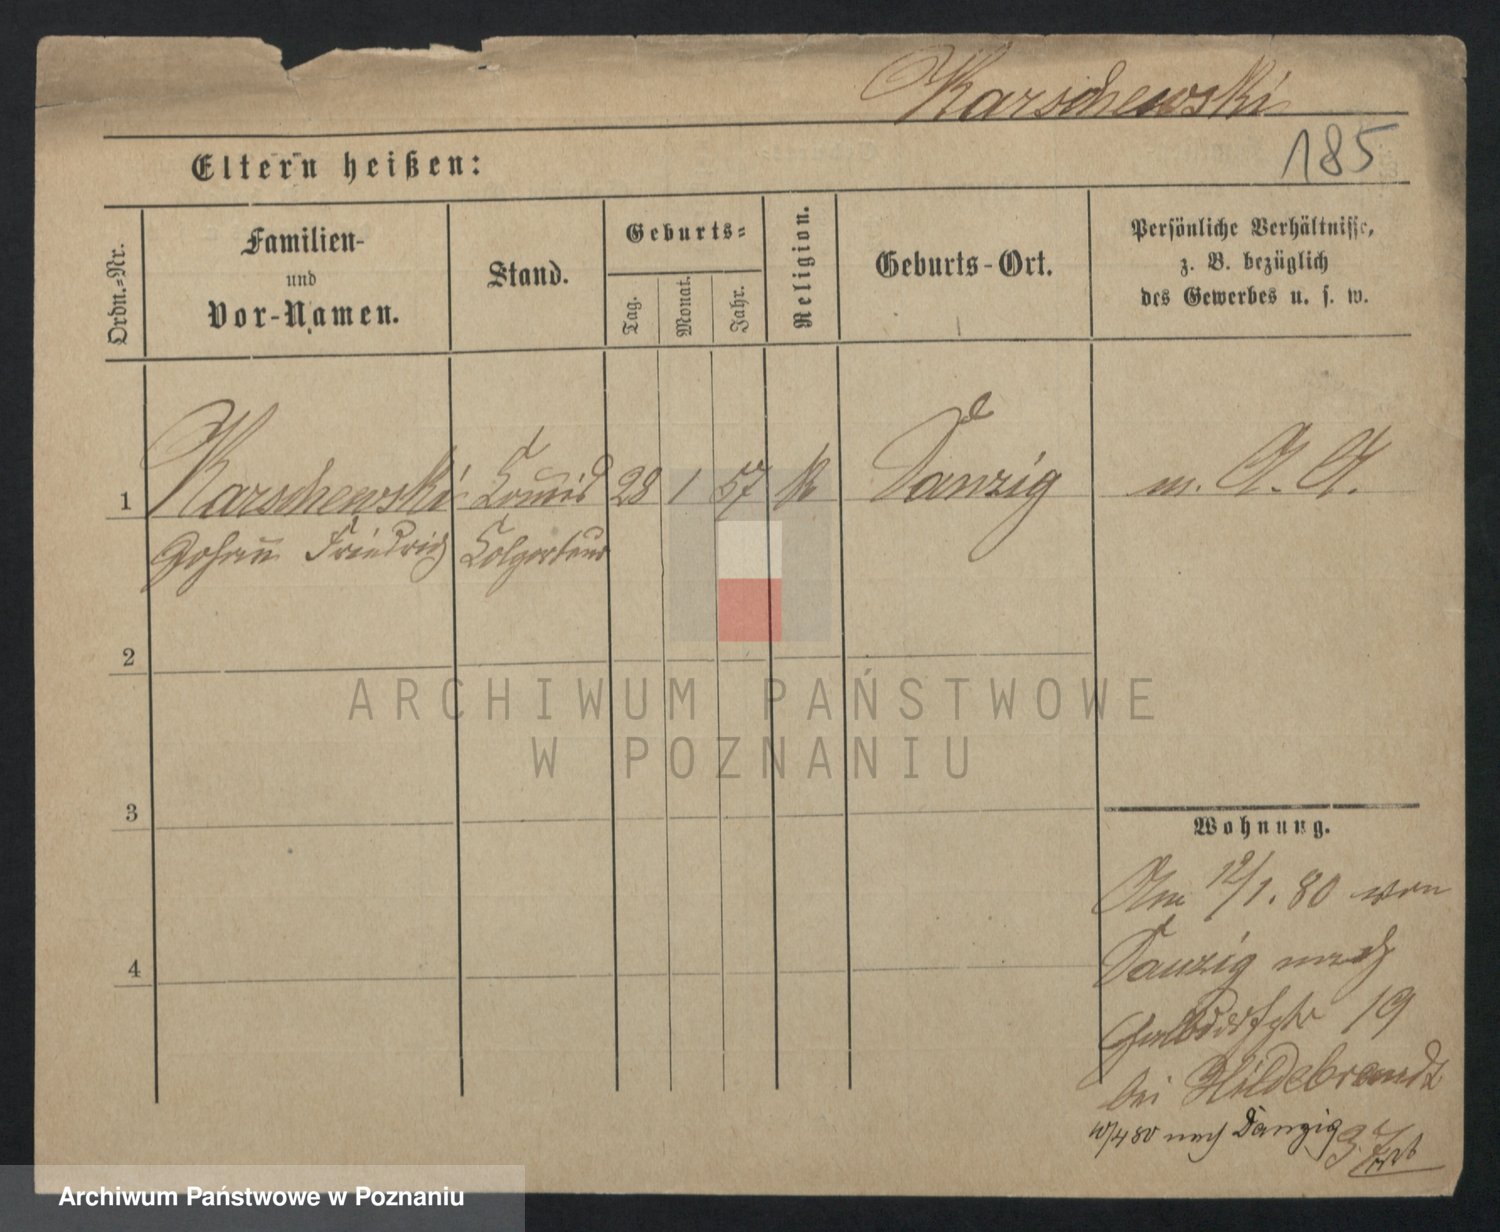 Karschewski
185
Eltern heißen:
Ordn.-Nr.
Familien-
und
Vor-Namen.
Stand.
Geburts-
Tag.
Monat.
Jahr.
Religion.
Geburts-Ort.
Persönliche Verhältnisse,
z. B. bezüglich
des Gewerbes u. s. w.
1
Karschewski
Johann Friedrich
Commis
Colporteur
28
1
57
k
Danzig
m. A. A.
2
ARCHIWUM PAŃSTWOWE
W POZNANIU
3
4
Wohnung.
Am 12/1. 80 von
Danzig nach
Halbdorfstr 19
bei Hildebrandt
10/4 80 nach Danzig
Archiwum Państwowe w Poznaniu